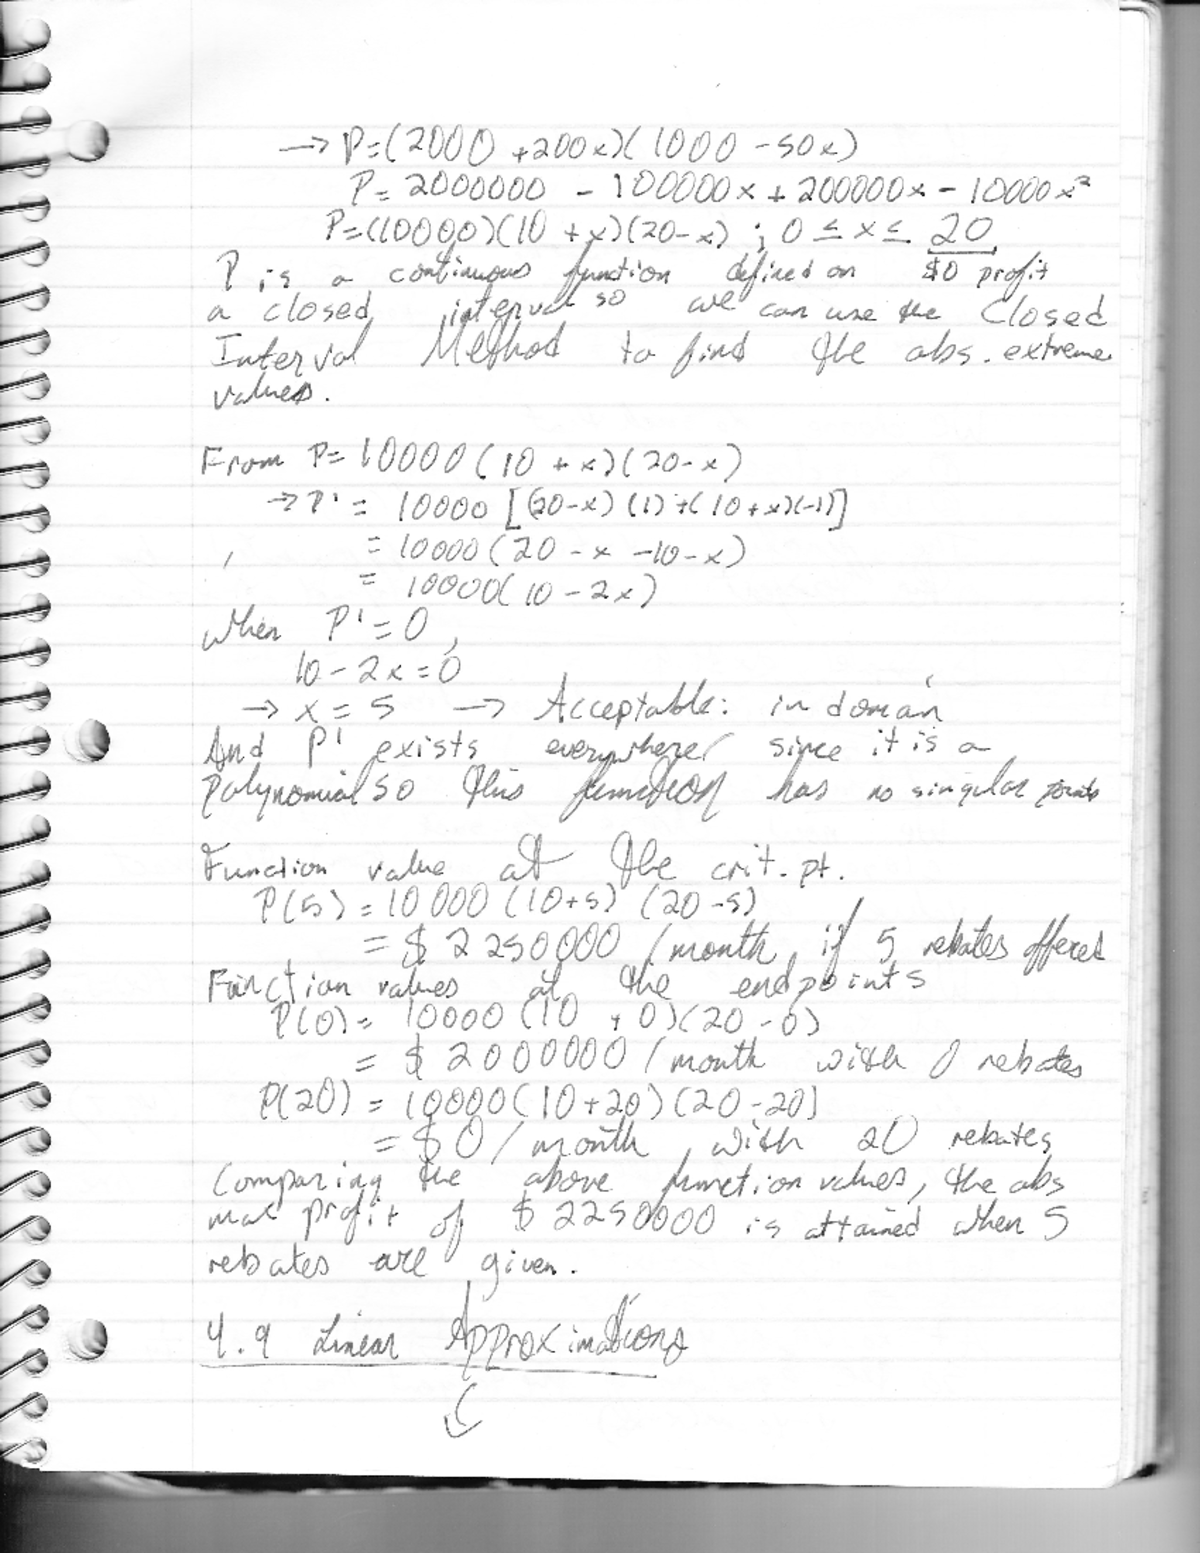 → P=(2000 +200x)(1000 -50x)
P= 2000000 - 100000x + 200000x - 10000x²
P=(10000)(10 + x)(20-x) ; 0 ≤ x ≤ 20
P is a continuous function defined on $0 profit
a closed interval so we can use the Closed
Interval Method to find the abs. extreme
values.
From P= 10000(10 + x)(20-x)
→ P' = 10000 [(20-x)(1)+(10+x)(-1)]
= 10000(20 - x -10-x)
= 10000(10-2x)
When P'=0,
10-2x=0
→ x = 5 → Acceptable: in domain
And P' exists everywhere, since it is a
polynomial so this function has no singular points
Function value at the crit. pt.
P(5) = 10000 (10+5) (20-5)
= $ 2250000 /month, if 5 rebates offered
Function values at the endpoints
P(0)= 10000 (10 + 0)(20-0)
= $ 2000000 /month with 0 rebates
P(20) = 10000(10+20)(20-20)
= $0/month, with 20 rebates
Comparing the above function values, the abs
max profit of $ 2250000 is attained when 5
rebates are given.
4.9 Linear Approximations
↓